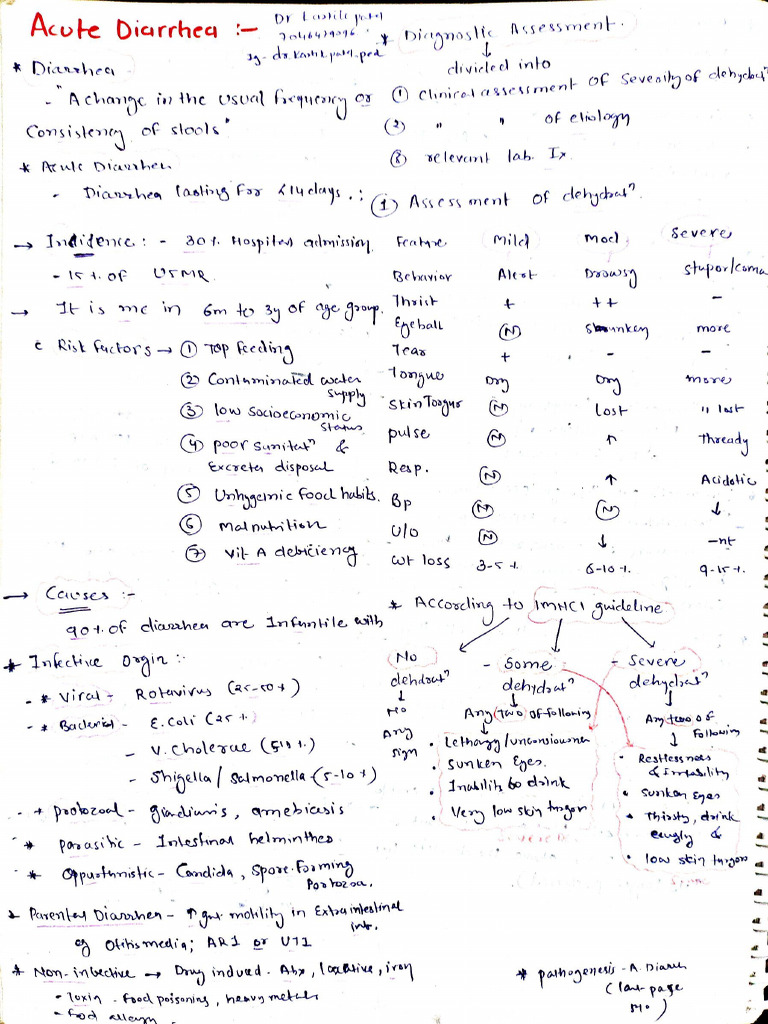 Acute Diarrhea :-
* Diarrhea
- "A change in the usual frequency or
Consistency of stools"
* Acute Diarrhea
- Diarrhea lasting for <14 days.
→ Incidence : - 30% Hospital admission.
- 15% of U5MR
→ It is mc in 6m to 3y of age group.
Risk factors → ① Top feeding
② Contaminated water
supply
③ low socioeconomic
status
④ poor sanitatⁿ &
Excreta disposal
⑤ Unhygeinic food habits.
⑥ Malnutrition
⑦ Vit A deficiency
→ Causes :-
90% of diarrhea are Infantile with
* Infective Orgin :-
- * Viral - Rotavirus (25-50%)
- * Bacterial - E.coli (25%)
- V. Cholerae
- Shigella / Salmonella (5-10%)
- * protozoal - giardiasis, amebiasis
* parasitic - Intestinal helminthes
* Oppurtunistic - Candida, Spore-forming
Portozoa.
* Parental Diarrhea - ↑ gut motility in Extraintestinal
inf.
eg Otitis media, ARI or UTI
* Non-infective → Drug induced - Abx, laxative, iron
- Toxin - food poisoning, heavy metals
- food allergy
Dr
* Diagnostic Assessment.
↓
divided into
① Clinical assessment of Severity of dehydratⁿ
② " " of etiology
③ relevent lab. Ix
① Assessment of dehydratⁿ.
Feature Mild Mod Severe
Behavior Alert Drowsy stupor/coma
Thrist + ++ -
Eyeball Ⓝ Shrunken more
Tear + - -
Tongue Dry Dry more
Skin Torgur Ⓝ Lost " lost
pulse Ⓝ ↑ Thready
Resp. Ⓝ ↑ Acidotic
Bp Ⓝ Ⓝ ↓
U/O Ⓝ ↓ -nt
wt loss 3-5% 6-10% 9-15%
* According to IMNCI guideline
No
dehdratⁿ
↓
No
Any
sign
- Some
dehydratⁿ
↓
Any two of following
• Lethargy/unconsiousness
• Sunken Eyes.
• Inability to drink
• Very low skin turgor
- Severe
dehydratⁿ
↓
Any two of
following
• Restlessness
& Irritability
• Sunken Eyes
• Thirsty, drink
eargly &
• low skin turgor
* pathogenesis - A. Diarrh
(last page